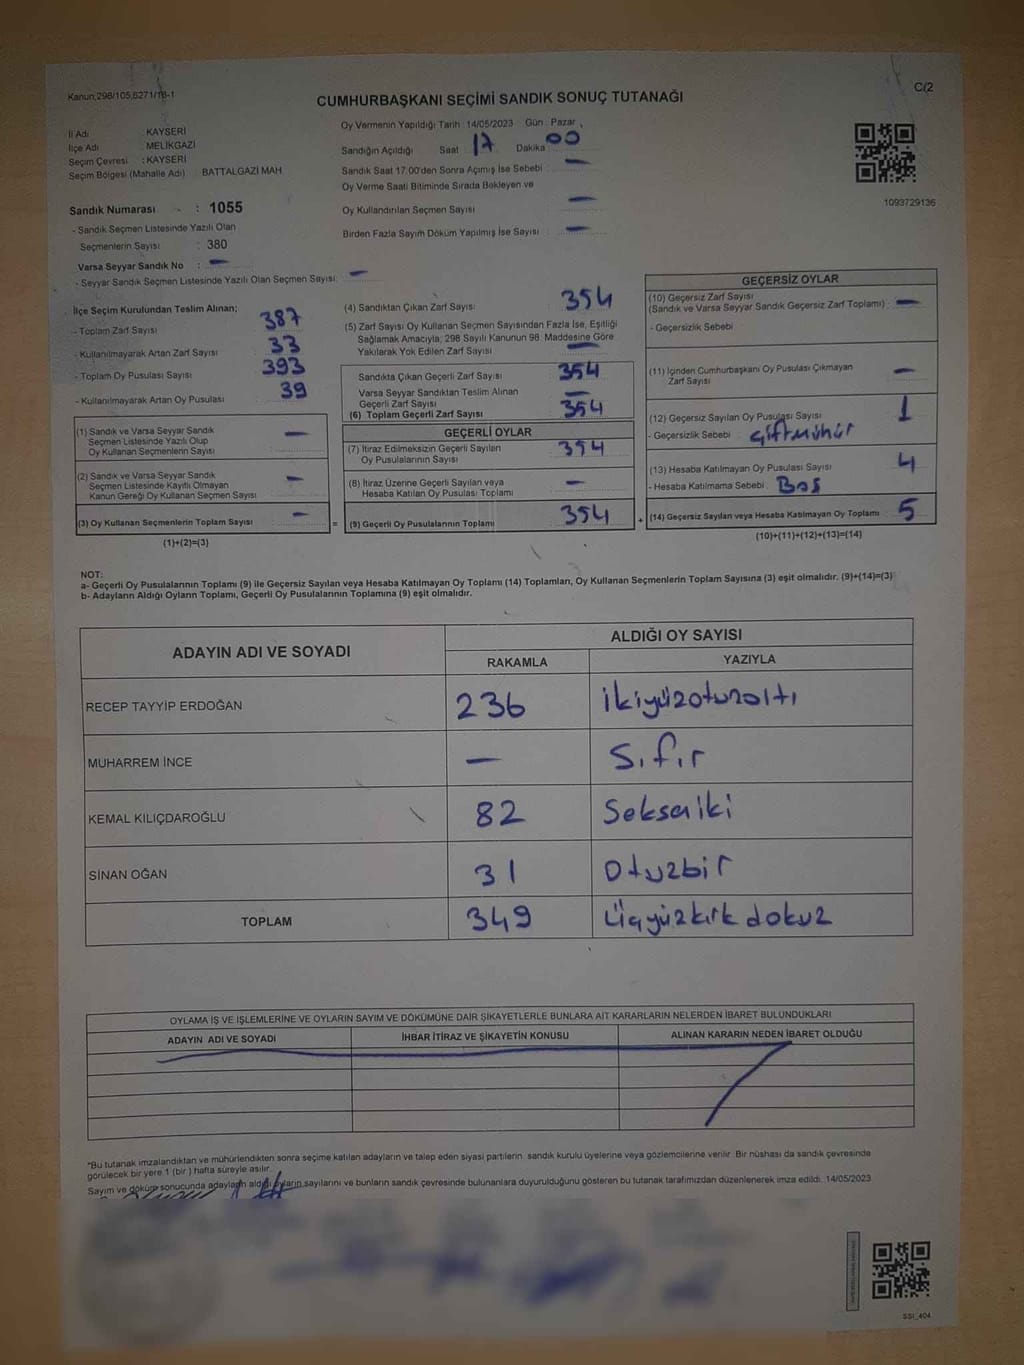 Kanun:298/105,6271/18-1
C/2
CUMHURBAŞKANI SEÇİMİ SANDIK SONUÇ TUTANAĞI
İl Adı KAYSERİ
İlçe Adı MELİKGAZİ
Seçim Çevresi : KAYSERİ
Seçim Bölgesi (Mahalle Adı) BATTALGAZİ MAH
Sandık Numarası : 1055
- Sandık Seçmen Listesinde Yazılı Olan
Seçmenlerin Sayısı : 380
Varsa Seyyar Sandık No : –
- Seyyar Sandık Seçmen Listesinde Yazılı Olan Seçmen Sayısı: –
Oy Vermenin Yapıldığı Tarih :14/05/2023 Gün : Pazar
Sandığın Açıldığı Saat 17 Dakika 00
Sandık Saat 17.00'den Sonra Açımış İse Sebebi : –
Oy Verme Saati Bitiminde Sırada Bekleyen ve
Oy Kullandırılan Seçmen Sayısı : –
Birden Fazla Sayım Döküm Yapılmış İse Sayısı : –
1093729136
İlçe Seçim Kurulundan Teslim Alınan;
- Toplam Zarf Sayısı 387
- Kullanılmayarak Artan Zarf Sayısı 33
- Toplam Oy Pusulası Sayısı 393
- Kullanılmayarak Artan Oy Pusulası 39
(1) Sandık ve Varsa Seyyar Sandık
Seçmen Listesinde Yazılı Olup
Oy Kullanan Seçmenlerin Sayısı –
(2) Sandık ve Varsa Seyyar Sandık
Seçmen Listesinde Kayıtlı Olmayan
Kanun Gereği Oy Kullanan Seçmen Sayısı –
(3) Oy Kullanan Seçmenlerin Toplam Sayısı –
(1)+(2)=(3)
=
(4) Sandıktan Çıkan Zarf Sayısı 354
(5) Zarf Sayısı Oy Kullanan Seçmen Sayısından Fazla İse, Eşitliği
Sağlamak Amacıyla; 298 Sayılı Kanunun 98. Maddesine Göre
Yakılarak Yok Edilen Zarf Sayısı –
Sandıkta Çıkan Geçerli Zarf Sayısı 354
Varsa Seyyar Sandıktan Teslim Alınan
Geçerli Zarf Sayısı –
(6) Toplam Geçerli Zarf Sayısı 354
GEÇERLİ OYLAR
(7) İtiraz Edilmeksizin Geçerli Sayılan
Oy Pusulalarının Sayısı 354
(8) İtiraz Üzerine Geçerli Sayılan veya
Hesaba Katılan Oy Pusulası Toplamı –
(9) Geçerli Oy Pusulalarının Toplamı 354
+
GEÇERSİZ OYLAR
(10) Geçersiz Zarf Sayısı
(Sandık ve Varsa Seyyar Sandık Geçersiz Zarf Toplamı) –
- Geçersizlik Sebebi
(11) İçinden Cumhurbaşkanı Oy Pusulası Çıkmayan
Zarf Sayısı –
(12) Geçersiz Sayılan Oy Pusulası Sayısı 1
- Geçersizlik Sebebi : Çiftmühür
(13) Hesaba Katılmayan Oy Pusulası Sayısı 4
- Hesaba Katılmama Sebebi : Boş
(14) Geçersiz Sayılan veya Hesaba Katılmayan Oy Toplamı 5
(10)+(11)+(12)+(13)=(14)
NOT:
a- Geçerli Oy Pusulalarının Toplamı (9) ile Geçersiz Sayılan veya Hesaba Katılmayan Oy Toplamı (14) Toplamları, Oy Kullanan Seçmenlerin Toplam Sayısına (3) eşit olmalıdır. (9)+(14)=(3)
b- Adayların Aldığı Oyların Toplamı, Geçerli Oy Pusulalarının Toplamına (9) eşit olmalıdır.
ADAYIN ADI VE SOYADI ALDIĞI OY SAYISI
RAKAMLA YAZIYLA
RECEP TAYYİP ERDOĞAN 236 ikiyüzotuzaltı
MUHARREM İNCE – Sıfır
KEMAL KILIÇDAROĞLU 82 Seksaiki
SİNAN OĞAN 31 Otuzbir
TOPLAM 349 Üçyüzkırk dokuz
OYLAMA İŞ VE İŞLEMLERİNE VE OYLARIN SAYIM VE DÖKÜMÜNE DAİR ŞİKAYETLERLE BUNLARA AİT KARARLARIN NELERDEN İBARET BULUNDUKLARI
ADAYIN ADI VE SOYADI İHBAR İTİRAZ VE ŞİKAYETİN KONUSU ALINAN KARARIN NEDEN İBARET OLDUĞU
*Bu tutanak imzalandıktan ve mühürlendikten sonra seçime katılan adayların ve talep eden siyasi partilerin sandık kurulu üyelerine veya gözlemcilerine verilir. Bir nüshası da sandık çevresinde
görülecek bir yere 1 (bir) hafta süreyle asılır.
Sayım ve döküm sonucunda adayların aldığı oyların sayılarını ve bunların sandık çevresinde bulunanlara duyurulduğunu gösteren bu tutanak tarafımızdan düzenlenerek imza edildi. 14/05/2023
SSI_404